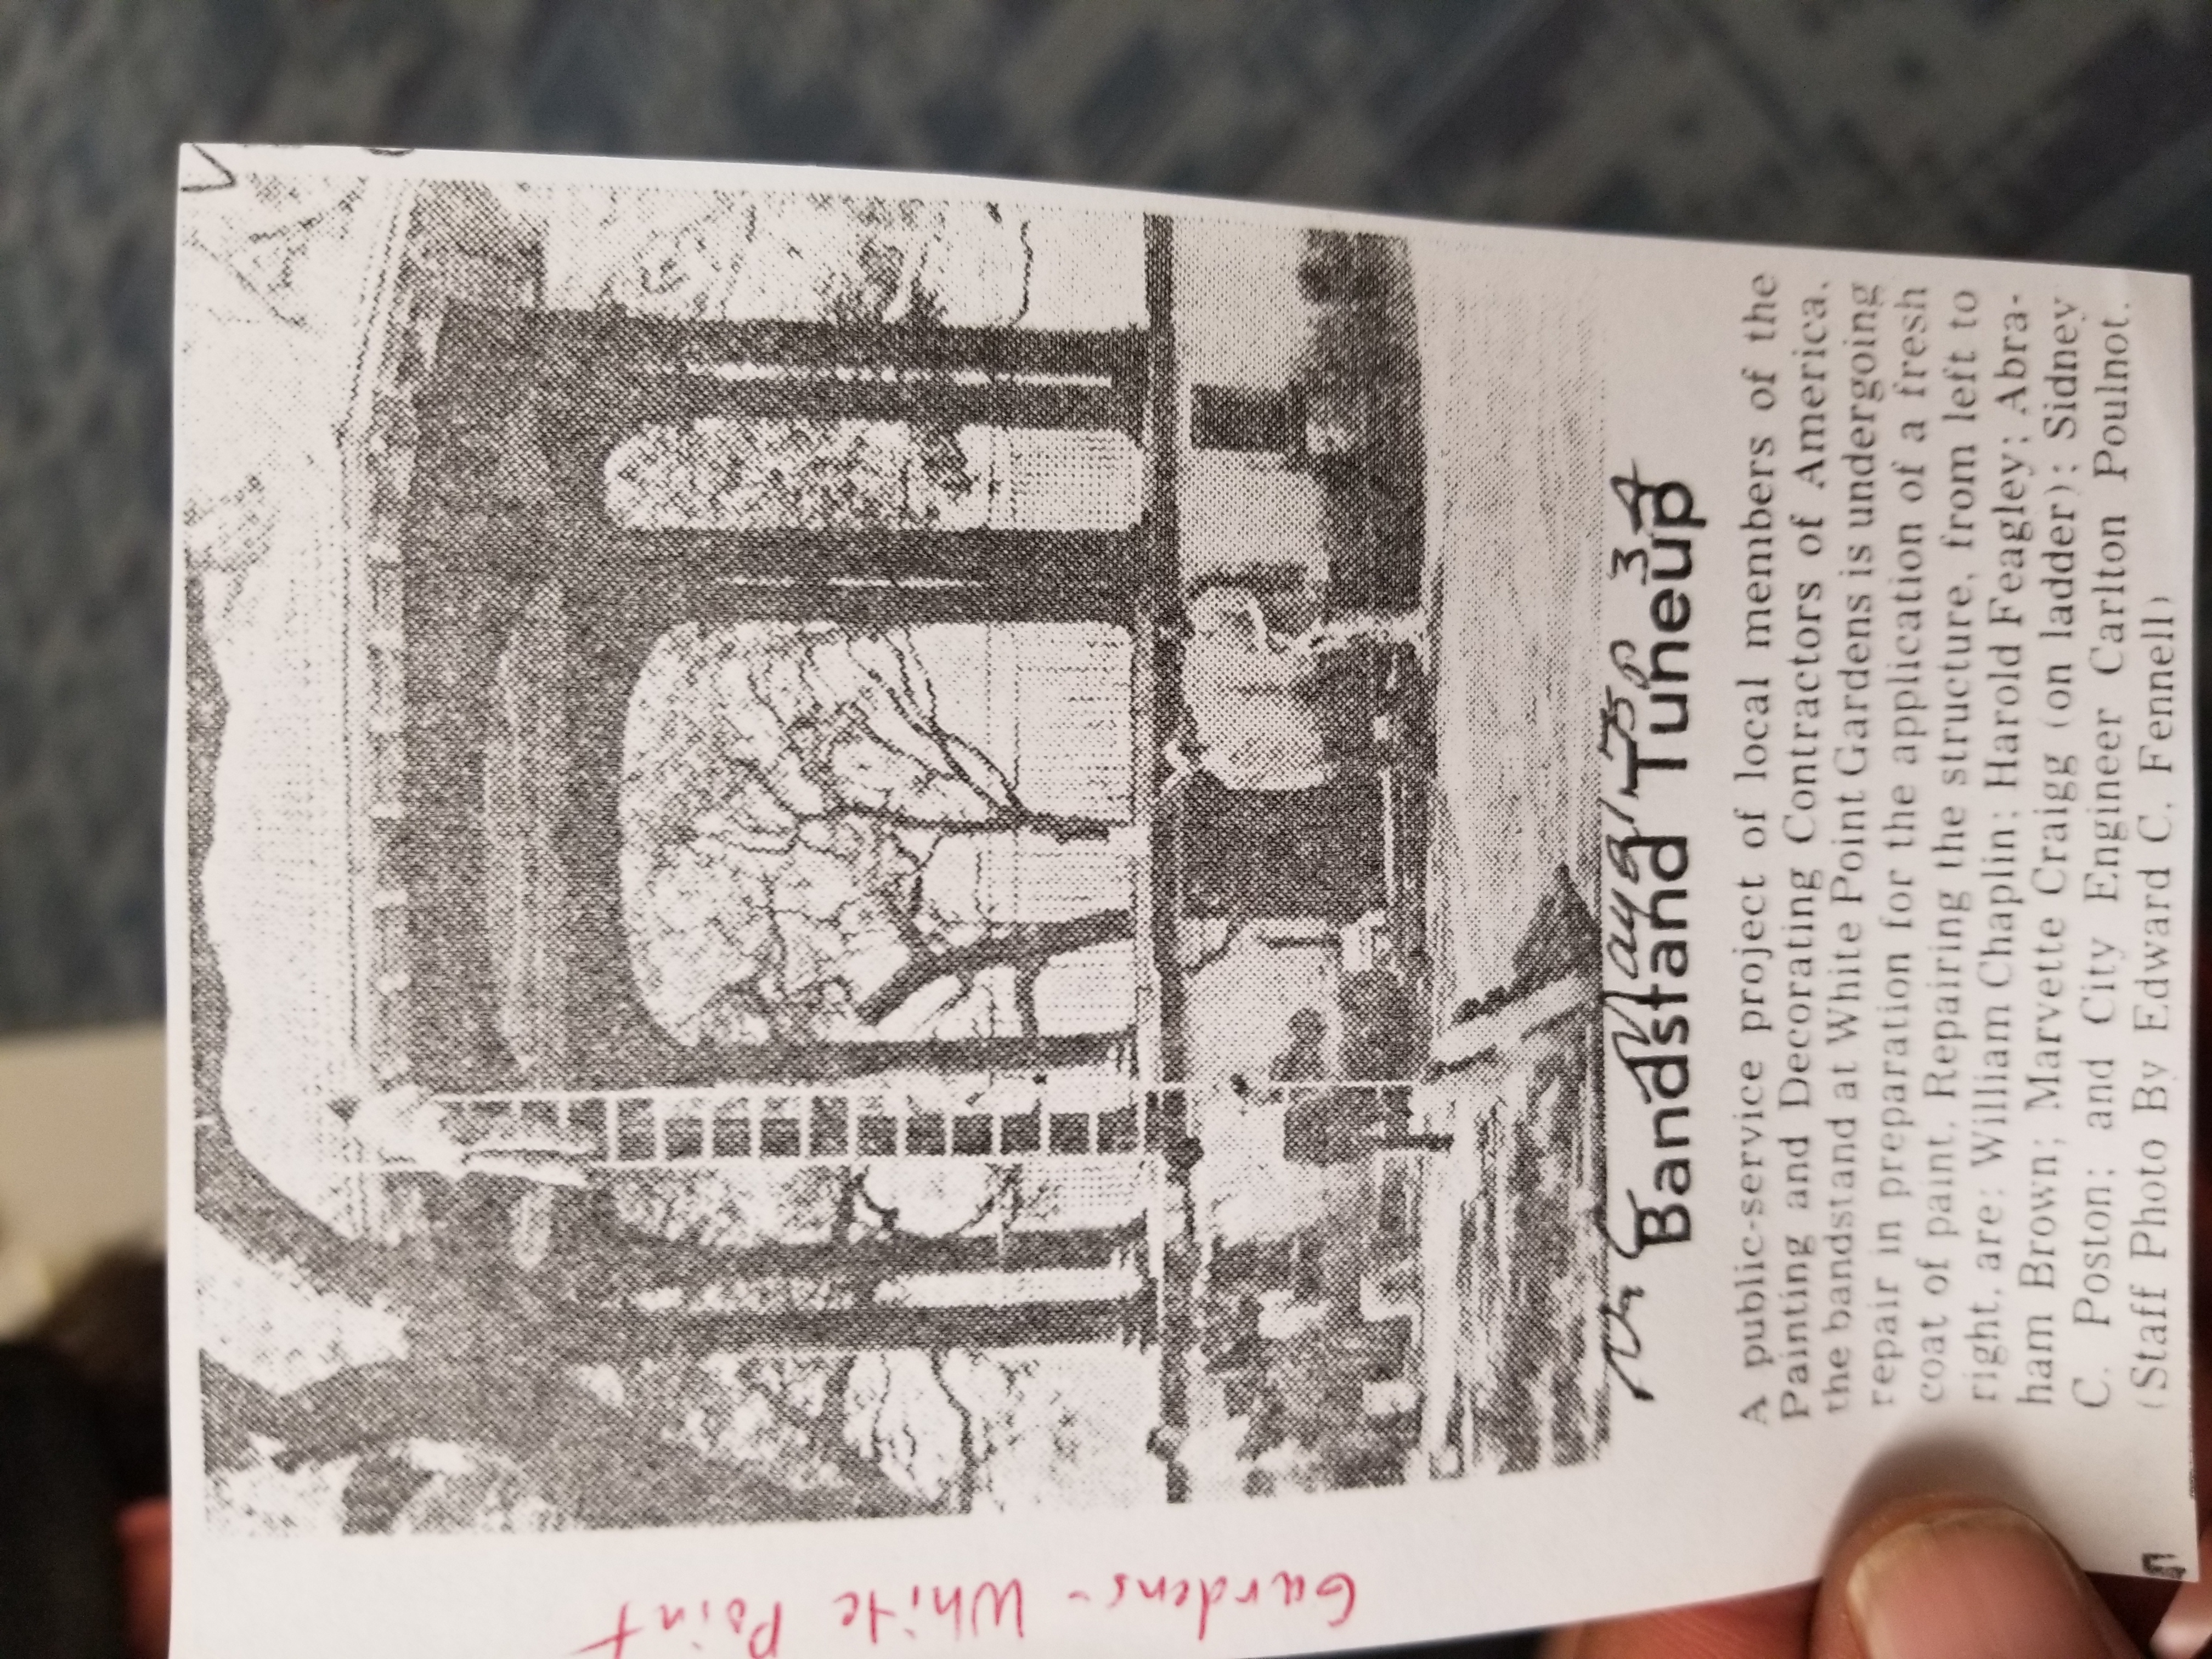 Gardens - White Point
N&C May 8/75 P 3A
Bandstand Tuneup
A public-service project of local members of the
Painting and Decorating Contractors of America,
the bandstand at White Point Gardens is undergoing
repair in preparation for the application of a fresh
coat of paint. Repairing the structure, from left to
right, are: William Chaplin; Harold Feagley; Abra-
ham Brown; Marvette Craigg (on ladder); Sidney
C. Poston; and City Engineer Carlton Poulnot.
(Staff Photo By Edward C. Fennell)